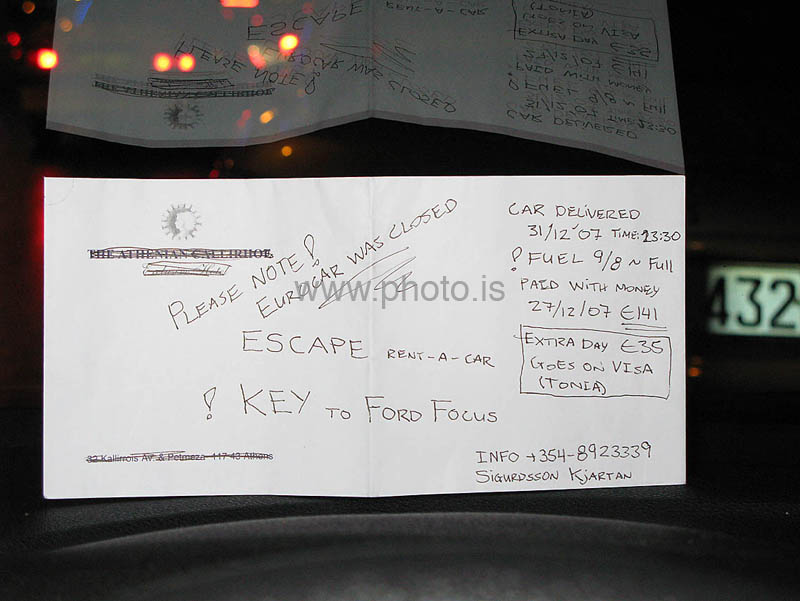 THE ATHENIAN CALLIRHOE
PLEASE NOTE!
EUROCAR WAS CLOSED
www.photo.is
ESCAPE RENT-A-CAR
! KEY TO FORD FOCUS
32 Kallirrois Av. & Petmeza 117 43 Athens
CAR DELIVERED
31/12 '07 TIME: 23:30
! FUEL 9/8 ~ FULL
PAID WITH MONEY
27/12/07 €141
EXTRA DAY €35
GOES ON VISA
(TONIA)
INFO +354-8923339
SIGURDSSON KJARTAN
432